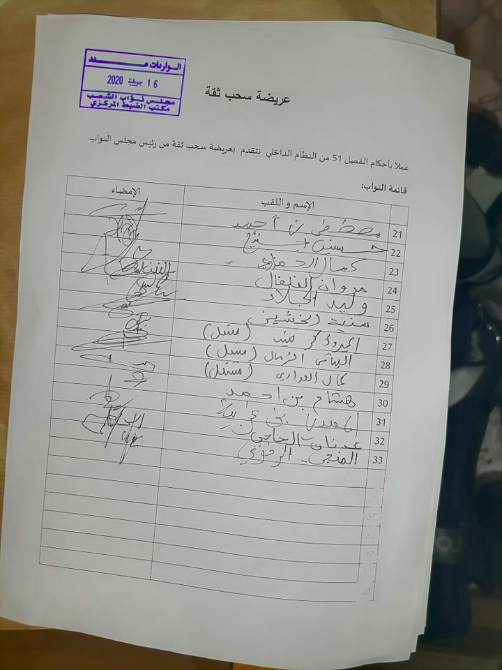 الواردات عـــدد
16 جويلية 2020
مجلس نواب الشعب
مكتب الضبط المركزي
عريضة سحب ثقة
عملا بأحكام الفصل 51 من النظام الداخلي نتقدم بعريضة سحب ثقة من رئيس مجلس النواب
قائمة النواب:
الإسم واللقب الإمضاء
21 مصطفى بن أحمد
22
23 كمال الحمزاوي
24 مروان الفلفال
25 وليد الجلاد
26
27 المبروك (مستقل)
28 (مستقل)
29 كمال العوادي (مستقل)
30 هشام بن أحمد
31 المهدي بن غربية
32 عدنان الحاجي
33 المنجي الرحوي